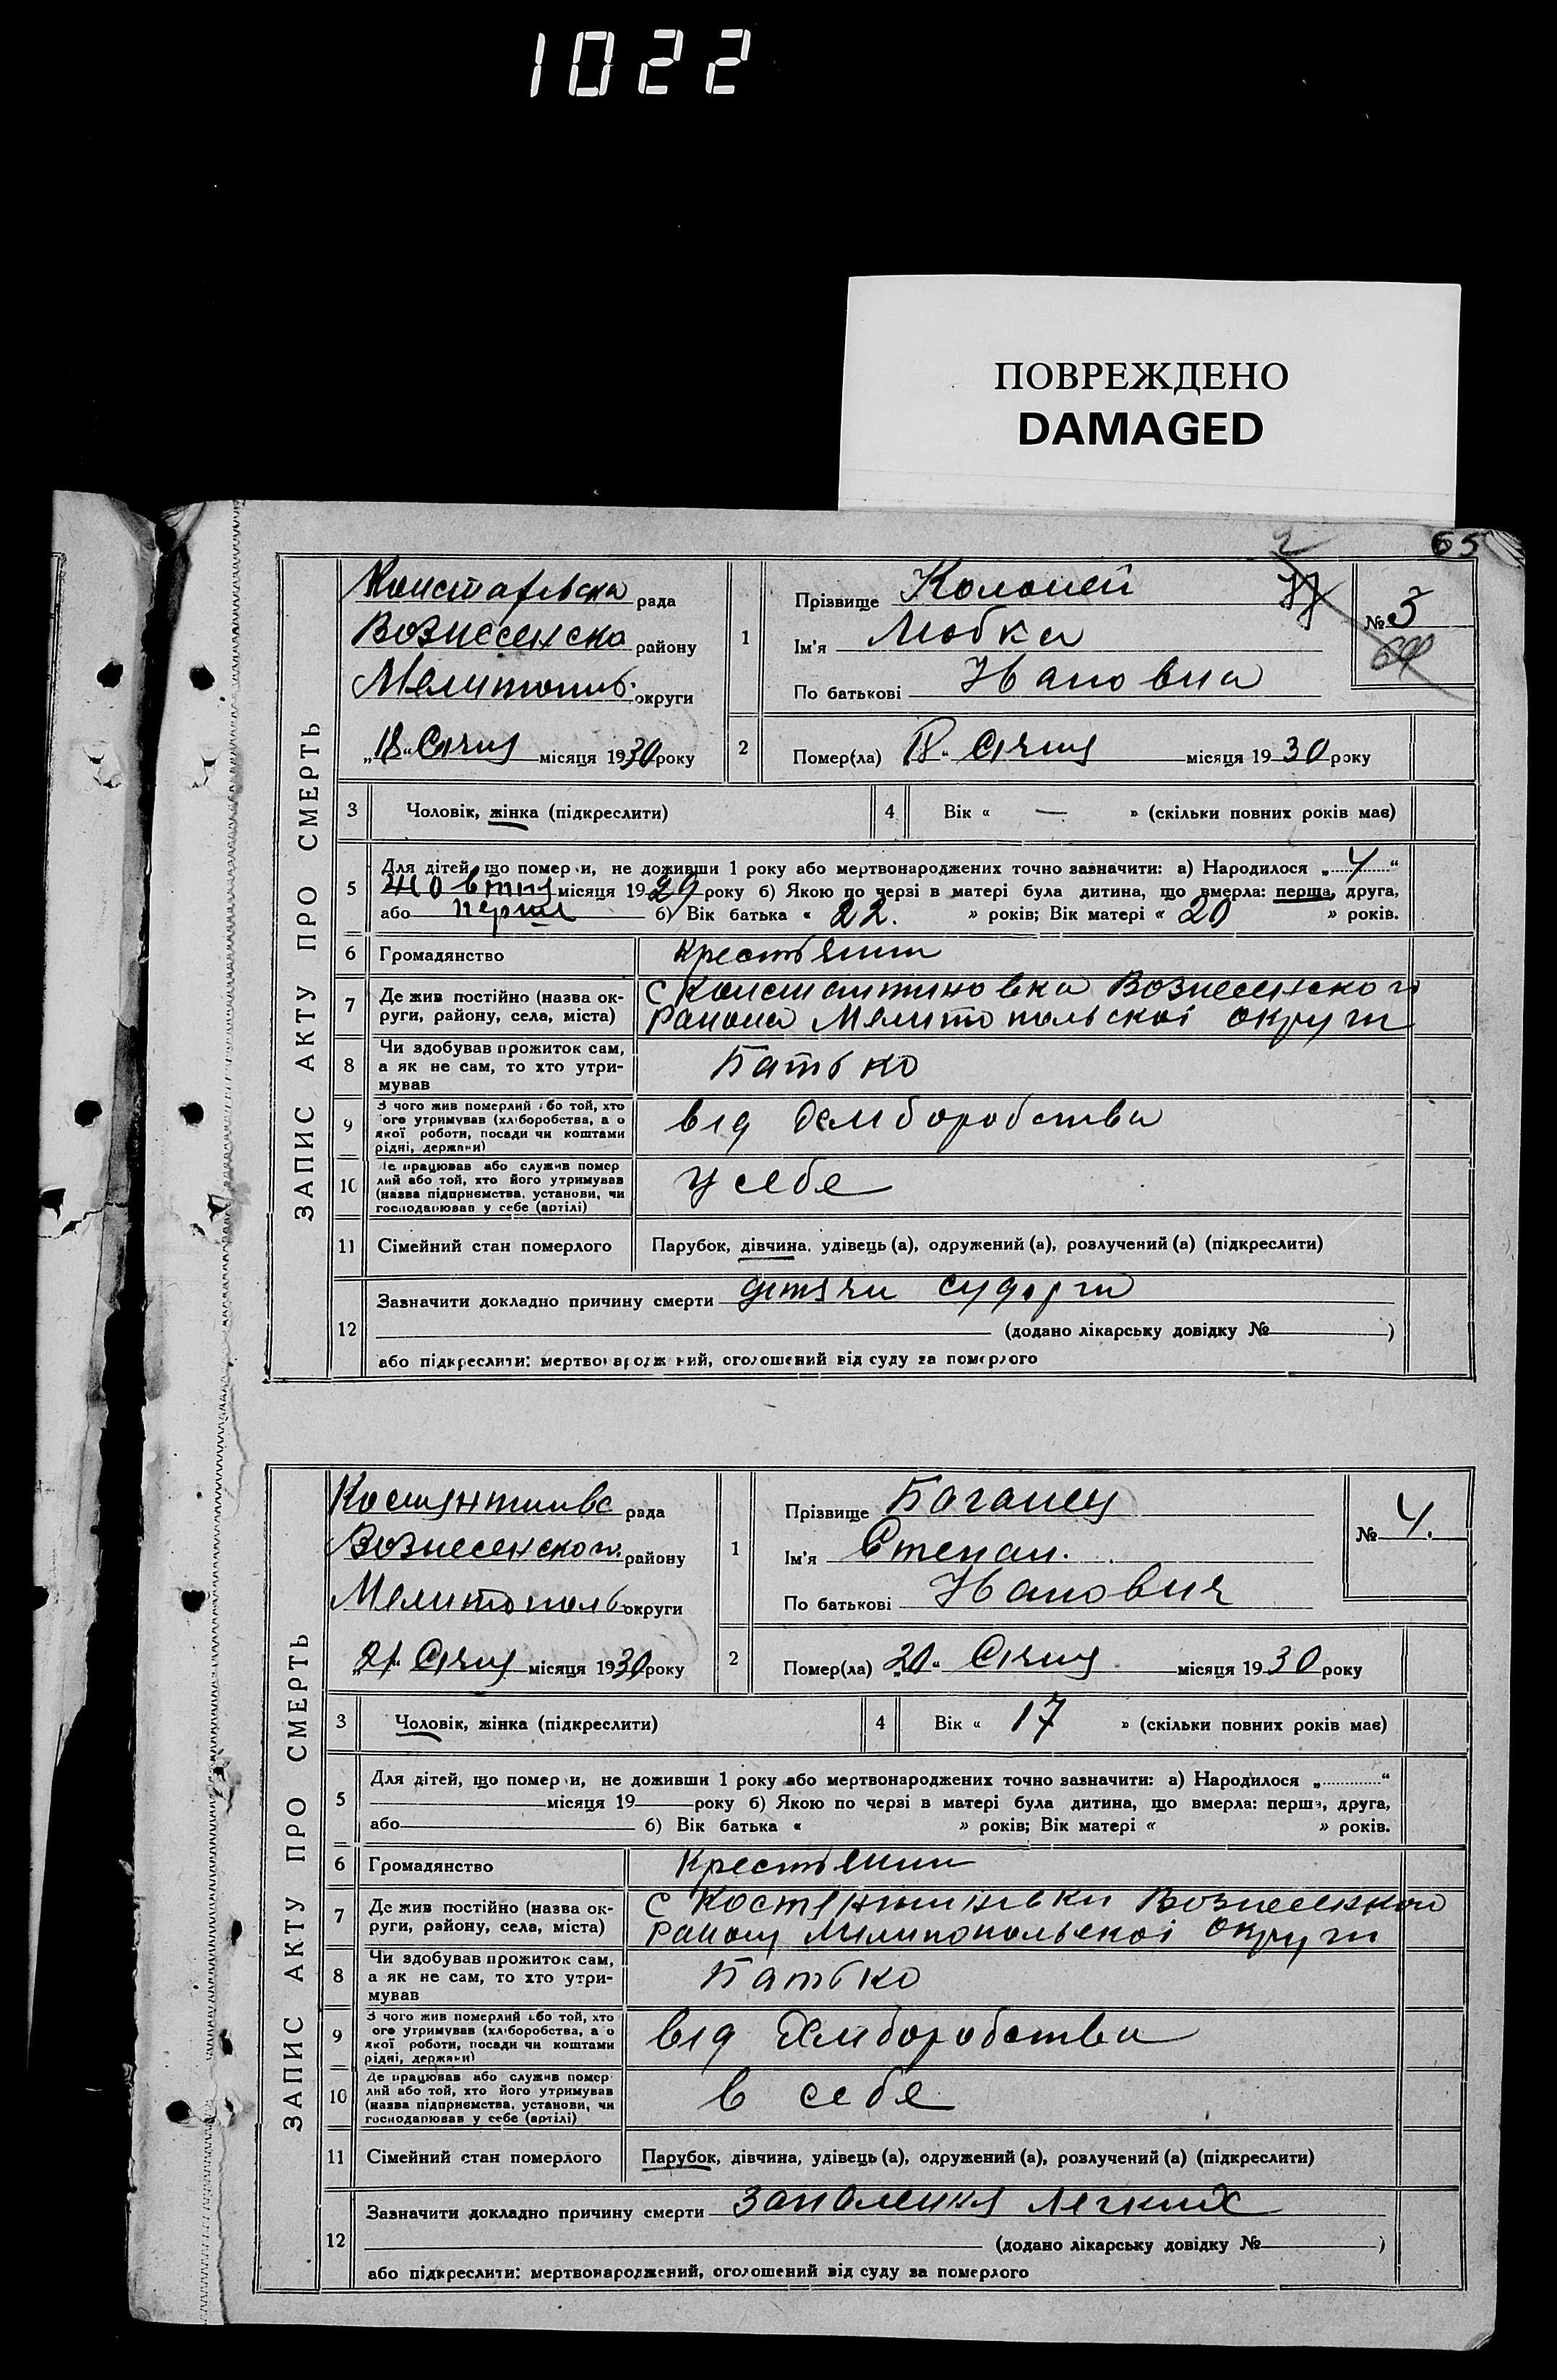 1022
ПОВРЕЖДЕНО
DAMAGED
65
ЗАПИС АКТУ ПРО СМЕРТЬ
рада
Вознесенско району
Мелитопиль округи
„18“ Січня місяця 1930 року
1 Прізвище Коломей
Ім'я Любка
По батькові Ивановна
№ 3
2 Помер(ла) 18 „ Січня місяця 1930 року
3 Чоловік, жінка (підкреслити)
4 Вік « — » (скільки повних років має)
5 Для дітей, що померли, не доживши 1 року або мертвонароджених точно зазначити: а) Народилося „4“
Жовтня місяця 1929 року б) Якою по черзі в матері була дитина, що вмерла: перша, друга,
або перша б) Вік батька « 22. » років; Вік матері « 20 » років.
6 Громадянство Крестьянин
7 Де жив постійно (назва ок-
руги, району, села, міста)
с Константиновка Вознесенского
Района Мелитопольскоі округи
8 Чи здобував прожиток сам,
а як не сам, то хто утри-
мував
Батько
9 З чого жив померлий або той, хто
його утримував (хліборобства, а о
якої роботи, посади чи коштами
рідні, держави)
від Хлиборобства
10 Де працював або служив помер
лий або той, хто його утримував
(назва підприємства, установи, чи
господарював у себе (артілі)
у себе
11 Сімейний стан померлого Парубок, дівчина, удівець (а), одружений (а), розлучений (а) (підкреслити)
12 Зазначити докладно причину смерти дитячи судорги
(додано лікарську довідку № )
або підкреслити: мертвонароджений, оголошений від суду за померлого
ЗАПИС АКТУ ПРО СМЕРТЬ
рада
Вознесенского району
Мелитополь округи
„21“ Січня місяця 1930 року
1 Прізвище Баганец
Ім'я Степан.
По батькові Иванович
№ 4.
2 Помер(ла) „20“ Січня місяця 1930 року
3 Чоловік, жінка (підкреслити)
4 Вік « 17 » (скільки повних років має)
5 Для дітей, що померли, не доживши 1 року або мертвонароджених точно зазначити: а) Народилося „ “
місяця 19 року б) Якою по черзі в матері була дитина, що вмерла: перша, друга,
або б) Вік батька « » років; Вік матері « » років.
6 Громадянство Крестьянин
7 Де жив постійно (назва ок-
руги, району, села, міста)
с Костянтинивки Вознесенского
Району Мелитопольскоі округи
8 Чи здобував прожиток сам,
а як не сам, то хто утри-
мував
Батько
9 З чого жив померлий або той, хто
його утримував (хліборобства, а о
якої роботи, посади чи коштами
рідні, держави)
від Хлиборобства
10 Де працював або служив помер
лий або той, хто його утримував
(назва підприємства, установи, чи
господарював у себе (артілі)
в себе
11 Сімейний стан померлого Парубок, дівчина, удівець (а), одружений (а), розлучений (а) (підкреслити)
12 Зазначити докладно причину смерти запаления легких
(додано лікарську довідку № )
або підкреслити: мертвонароджений, оголошений від суду за померлого